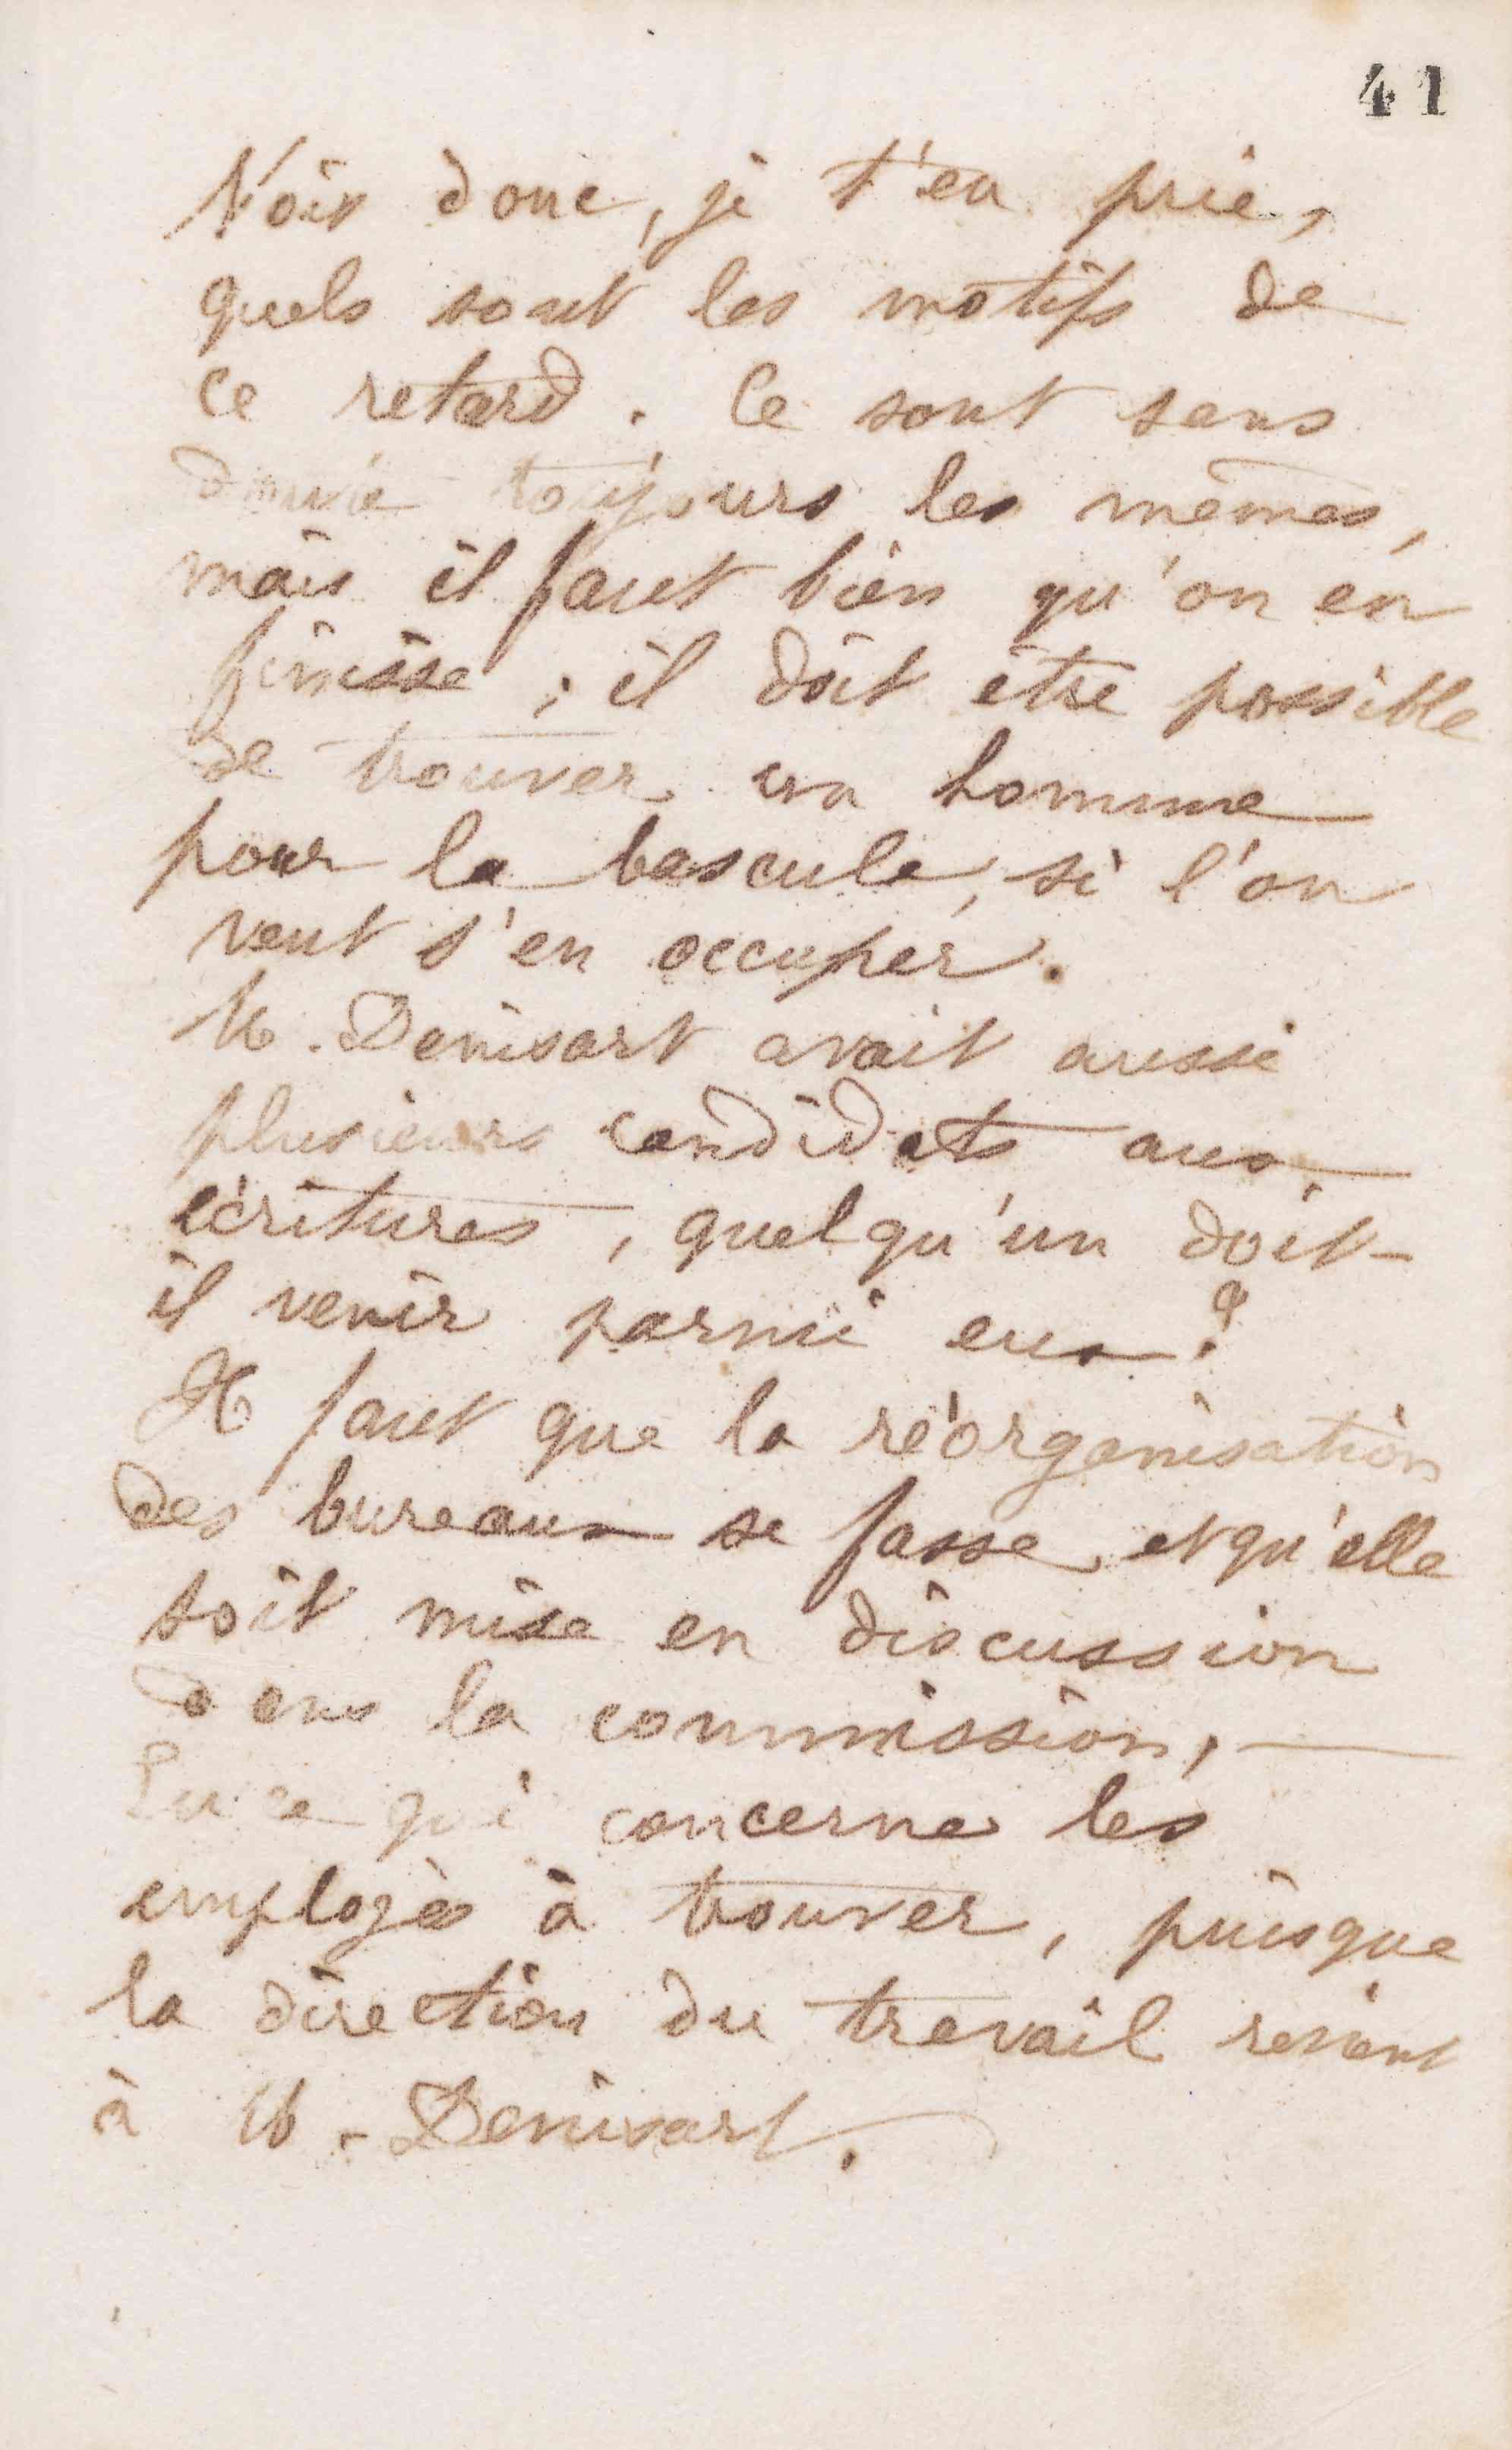 41
Vois donc, je t'en prie,
quels sont les motifs de
ce retard. Ce sont sans
doute toujours les mêmes,
mais il faut bien qu'on en
finisse ; il doit être possible
de trouver un homme
pour la bascule, si l'on
veut s'en occuper.
M. Denisart avait aussi
plusieurs candidats aux
écritures, quelqu'un doit-
il venir parmi eux ?
Il faut que la réorganisation
des bureaux se fasse et qu'elle
soit mise en discussion
dans la commission, —
En ce qui concerne les
employés à trouver, puisque
la direction du travail revient
à M. Denisart.